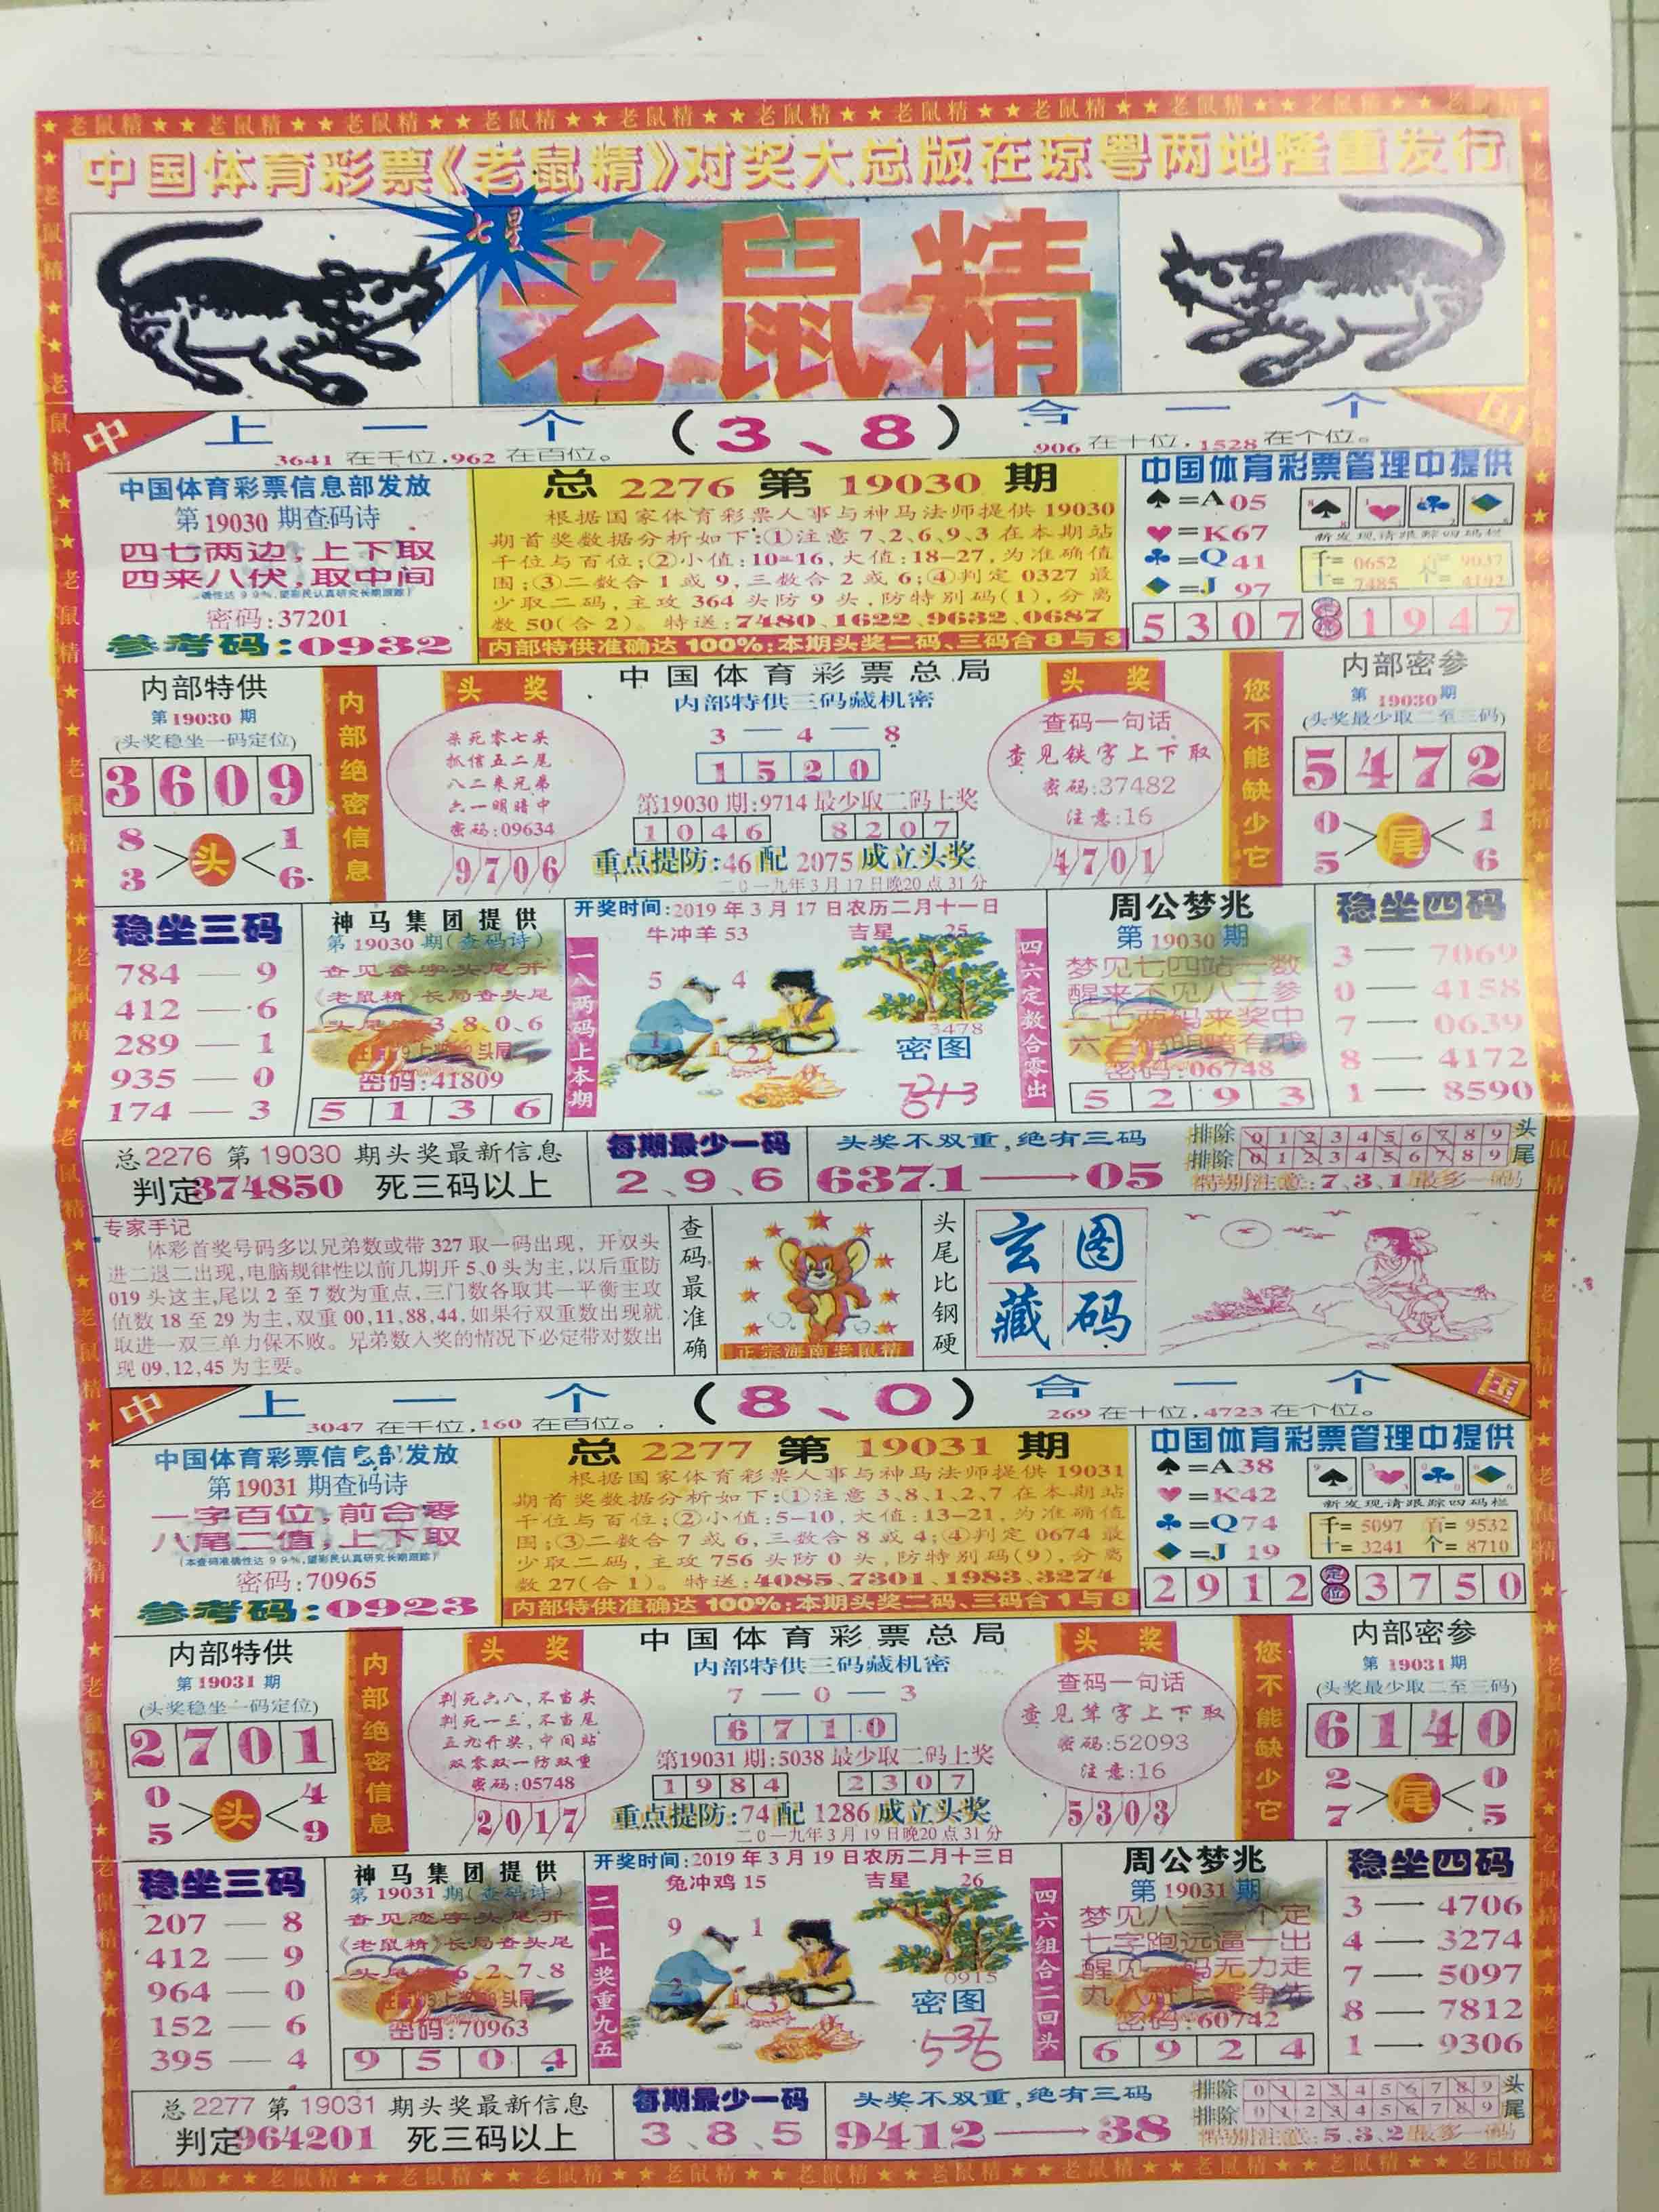 中国体育彩票《老鼠精》对奖大总版在琼粤两地隆重发行
七星
老鼠精
中 上一个 (3、8) 合一个 国
3641 在千位,962 在百位。 906 在十位,1528 在个位。
中国体育彩票信息部发放
第19030期查码诗
四七两边,上下取
四来八伏,取中间
密码:37201
参考码:0932
总 2276 第 19030 期
根据国家体育彩票人事与神马法师提供 19030
期首奖数据分析如下:①注意 7、2、6、9、3 在本期站
千位与百位;②小值:10=16,大值:18-27,为准确值
围;③二数合 1 或 9,三数合 2 或 6;④判定 0327 最
少取二码,主攻 364 头防 9 头,防特别码(1),分离
数 50(合 2)。特送:7480、1622、9632、0687
内部特供准确达 100%:本期头奖二码、三码合 8 与 3
中国体育彩票管理中提供
♠=A 05
♥=K67
♣=Q41
♦=J 97
新发现请跟踪四码栏
千= 0652 百= 9037
十= 7485 个= 4192
5307 定位 1947
内部特供
第 19030 期
(头奖稳坐一码定位)
3609
8 1
头
3 6
内部绝密信息
头奖
杀死零七头
抓信五二尾
八二来兄弟
六一明暗中
密码:09634
9706
中国体育彩票总局
内部特供三码藏机密
3—4—8
1520
第19030 期:9714 最少取二码上奖
1046 8207
重点提防:46 配 2075 成立头奖
二0一九年3月17日晚20点31分
头奖
查码一句话
查见铁字上下取
密码:37482
注意:16
4701
您不能缺少它
内部密参
第 19030 期
(头奖最少取二至三码)
5472
0 1
尾
5 6
稳坐三码
784 — 9
412 — 6
289 — 1
935 — 0
174 — 3
神马集团提供
第 19030 期(查码诗)
《老鼠精》长局查头尾
3、8、0、6
密码:41809
5136
开奖时间:2019 年 3 月 17 日农历二月十一日
牛冲羊 53 吉星 25
一八两码上本期
5 4
1
2
3478
密图
四六定数合零出
周公梦兆
第 19030 期
梦见七四站一数
醒来不见八二参
一七两码来奖中
密码:06748
5293
稳坐四码
3 — 7069
0 — 4158
7 — 0639
8 — 4172
1 — 8590
总 2276 第 19030 期头奖最新信息
判定374850 死三码以上
每期最少一码
2、9、6
头奖不双重,绝有三码
6371 — 05
排除 0 1 2 3 4 5 6 7 8 9 头
排除 0 1 2 3 4 5 6 7 8 9 尾
特别注意:7、3、1最多一码
专家手记
体彩首奖号码多以兄弟数或带 327 取一码出现,开双头
进二退二出现,电脑规律性以前几期开 5、0 头为主,以后重防
019 头这主,尾以 2 至 7 数为重点,三门数各取其一平衡主攻
值数 18 至 29 为主,双重 00,11,88,44,如果行双重数出现就
取进一双三单力保不败。兄弟数入奖的情况下必定带对数出
现 09,12,45 为主要。
查码最准确
正宗海南老鼠精
头尾比钢硬
玄图
藏码
中 上一个 (8、0) 合一个 国
3047 在千位,160 在百位。 269 在十位,4723 在个位。
中国体育彩票信息部发放
第19031期查码诗
一字百位,前合零
八尾二值,上下取
(本查码准确性达 9 9%,望彩民认真研究长期跟踪)
密码:70965
参考码:0923
总 2277 第 19031 期
根据国家体育彩票人事与神马法师提供 19031
期首奖数据分析如下:①注意 3、8、1、2、7 在本期站
千位与百位;②小值:5-10,大值:13-21,为准确值
围;③二数合 7 或 6,三数合 8 或 4;④判定 0674 最
少取二码,主攻 756 头防 0 头,防特别码(9),分离
数 27(合 1)。特送:4085、7301、1983、3274
内部特供准确达 100%:本期头奖二码、三码合 1 与 8
中国体育彩票管理中提供
♠=A38
♥=K42
♣=Q74
♦=J 19
新发现请跟踪四码栏
千= 5097 百= 9532
十= 3241 个= 8710
2912 定位 3750
内部特供
第 19031 期
(头奖稳坐一码定位)
2701
0 4
头
5 9
内部绝密信息
头奖
判死六八,不当头
判死一三,不当尾
五九开奖,中间站
双零双一防双重
密码:05748
2017
中国体育彩票总局
内部特供三码藏机密
7—0—3
6710
第19031 期:5038 最少取二码上奖
1984 2307
重点提防:74 配 1286 成立头奖
二0一九年3月19日晚20点31分
头奖
查码一句话
查见笨字上下取
密码:52093
注意:16
5303
您不能缺少它
内部密参
第 19031 期
(头奖最少取二至三码)
6140
2 0
尾
7 5
稳坐三码
207 — 8
412 — 9
964 — 0
152 — 6
395 — 4
神马集团提供
第 19031 期(查码诗)
查见恋字头尾开
《老鼠精》长局查头尾
6、2、7、8
密码:70963
9504
开奖时间:2019 年 3 月 19 日农历二月十三日
兔冲鸡 15 吉星 26
二一上奖重九五
9 1
2
3
0915
密图
四六组合二回头
周公梦兆
第 19031 期
七字跑远逼一出
密码:60742
6924
稳坐四码
3 — 4706
4 — 3274
7 — 5097
8 — 7812
1 — 9306
总 2277 第 19031 期头奖最新信息
判定964201 死三码以上
每期最少一码
3、8、5
头奖不双重,绝有三码
9412 — 38
排除 0 1 2 3 4 5 6 7 8 9 头
排除 0 1 2 3 4 5 6 7 8 9 尾
特别注意:5、3、2最多一码